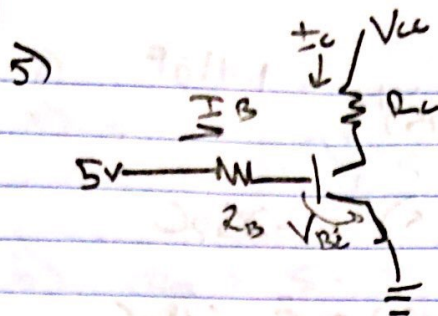 5)
Ic
Vcc
Rc
IB
5V
RB
VBE